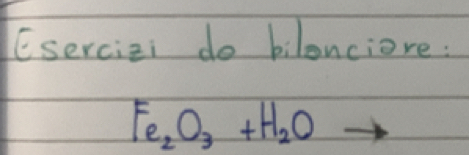 Esercizi da bilanciare:
Fe₂O₃ + H₂O →